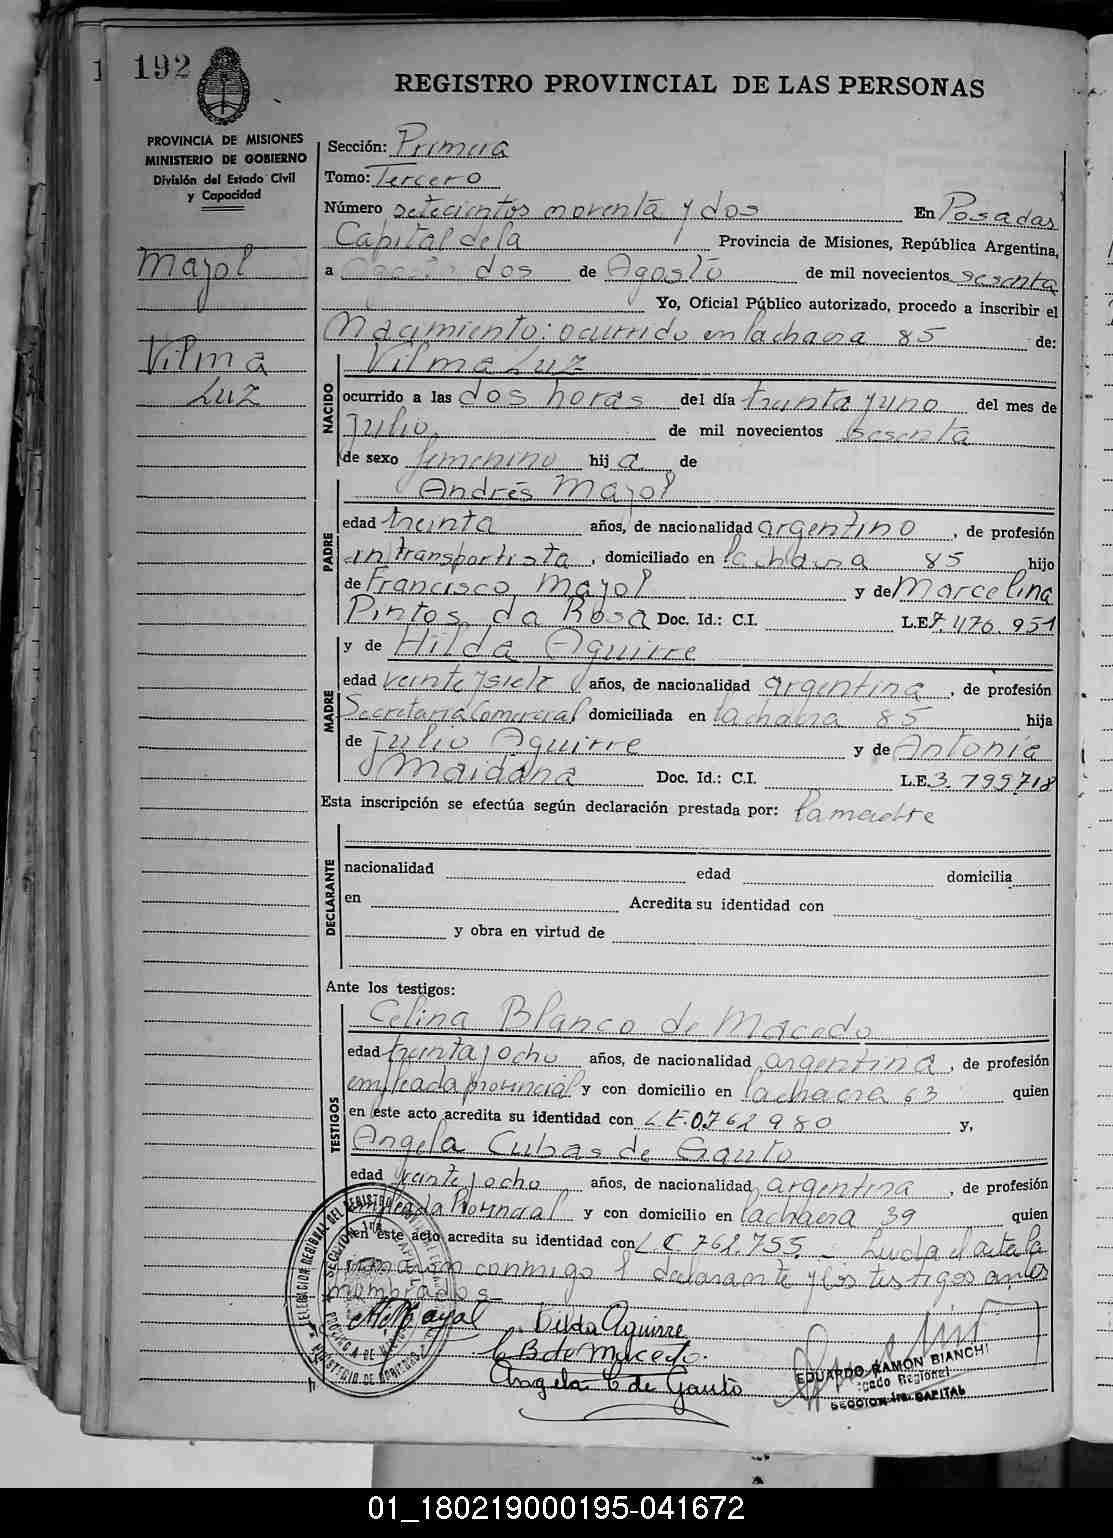 192
REGISTRO PROVINCIAL DE LAS PERSONAS
PROVINCIA DE MISIONES
MINISTERIO DE GOBIERNO
División del Estado Civil
y Capacidad
Mayol
Vilma
Luz
Sección: Primera
Tomo: Tercero
Número setecientos noventa y dos En Posadas
Capital de la Provincia de Misiones, República Argentina,
a dos de Agosto de mil novecientos sesenta
Yo, Oficial Público autorizado, procedo a inscribir el
Nacimiento: ocurrido en la chacra 85 de:
NACIDO
Vilma Luz
ocurrido a las dos horas del día treinta y uno del mes de
Julio de mil novecientos sesenta
de sexo femenino hija de
PADRE
Andrés Mayol
edad treinta años, de nacionalidad argentino, de profesión
transportista, domiciliado en la chacra 85 hijo
de Francisco Mayol y de Marcelina
Pintos da Rosa Doc. Id.: C.I. L.E. 7.476.951
MADRE
y de Hilda Aguirre
edad veinte y siete años, de nacionalidad argentina, de profesión
Secretaria Comercial domiciliada en la chacra 85 hija
de Julio Aguirre y de Antonia
Maidana Doc. Id.: C.I. L.E. 3.799718
Esta inscripción se efectúa según declaración prestada por: la madre
DECLARANTE
nacionalidad edad domicilia
en Acredita su identidad con
y obra en virtud de
Ante los testigos:
TESTIGOS
Celina Blanco de Macedo
edad treinta y ocho años, de nacionalidad argentina, de profesión
empleada provincial y con domicilio en la chacra 63 quien
en este acto acredita su identidad con L.E. 0.762 980 y,
Angela Cubas de Gauto
edad treinta y ocho años, de nacionalidad argentina, de profesión
empleada Provincial y con domicilio en la chacra 39 quien
en este acto acredita su identidad con L.C. 762.755 - Leida el acta la
firmaron conmigo el declarante y los testigos antes
nombrados
Hilda Aguirre
C B de Macedo.
Angela C de Gauto
EDUARDO RAMON BIANCHI
SECCION 1ra. CAPITAL
DELEGACION REGIONAL DEL REGISTRO
SECCION 1ra. CAPITAL
PROVINCIA DE MISIONES
MINISTERIO DE GOBIERNO
01_180219000195-041672